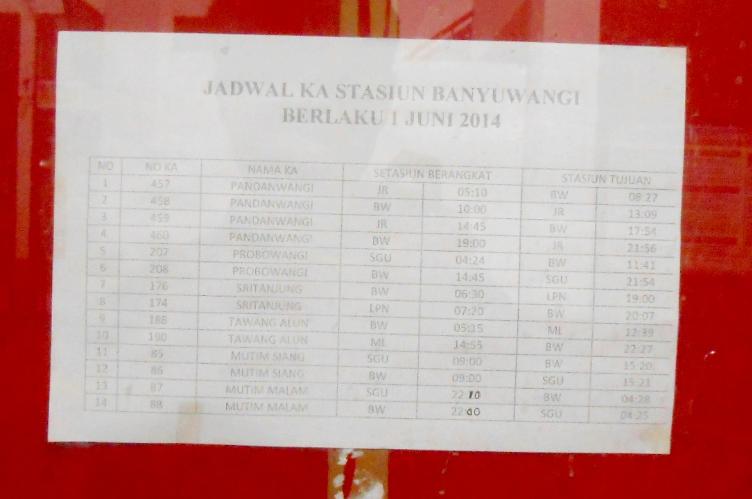 JADWAL KA STASIUN BANYUWANGI
BERLAKU 1 JUNI 2014
NO NO KA NAMA KA SETASIUN BERANGKAT STASIUN TUJUAN
1 457 PANDANWANGI JR 05:10 BW 08:27
2 458 PANDANWANGI BW 10:00 JR 13:09
3 459 PANDANWANGI JR 14:45 BW 17:54
4 460 PANDANWANGI BW 19:00 JR 21:56
5 207 PROBOWANGI SGU 04:24 BW 11:41
6 208 PROBOWANGI BW 14:45 SGU 21:54
7 176 SRITANJUNG BW 06:30 LPN 19:00
8 174 SRITANJUNG LPN 07:20 BW 20:07
9 188 TAWANG ALUN BW 05:15 ML 12:39
10 190 TAWANG ALUN ML 14:55 BW 22:27
11 85 MUTIM SIANG SGU 09:00 BW 15:20
12 86 MUTIM SIANG BW 09:00 SGU 15:23
13 87 MUTIM MALAM SGU 22 10 BW 04:28
14 88 MUTIM MALAM BW 22:00 SGU 04:25